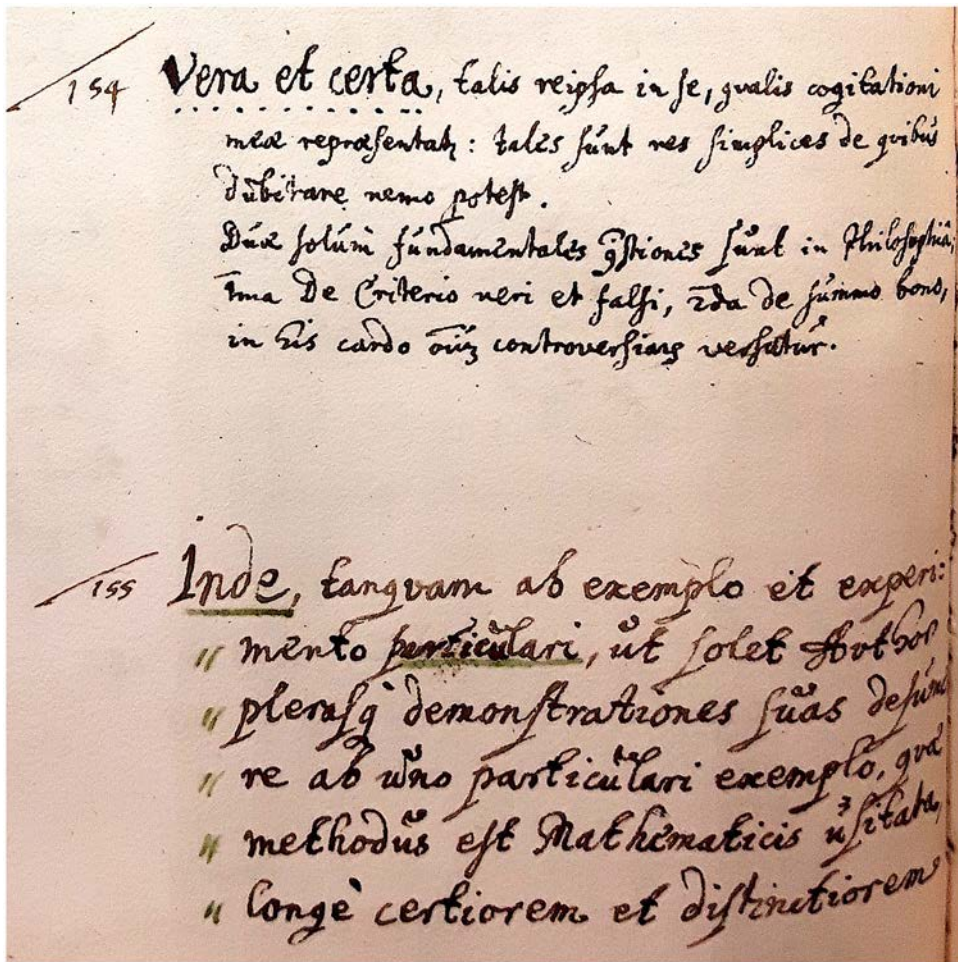 154 Vera et certa, talis reipsa in se, qvalis cogitationi
meæ repræsentatꝫ: tales sunt res simplices de qvibus
dubitare nemo potest.
Duæ solum fundamentales qvstiones sunt in Philosophia,
1ma De Criterio veri et falsi, 2da de summo bono,
in his cardo oiũ controversiaꝝ versatur.
155 Inde, tanqvam ab exemplo et experi:
" mento particulari, ut solet Author
" plerasq demonstrationes suas desume
" re ab uno particulari exemplo, qvæ
" methodus est Mathematicis usitata,
" longè certiorem et distinctiorem